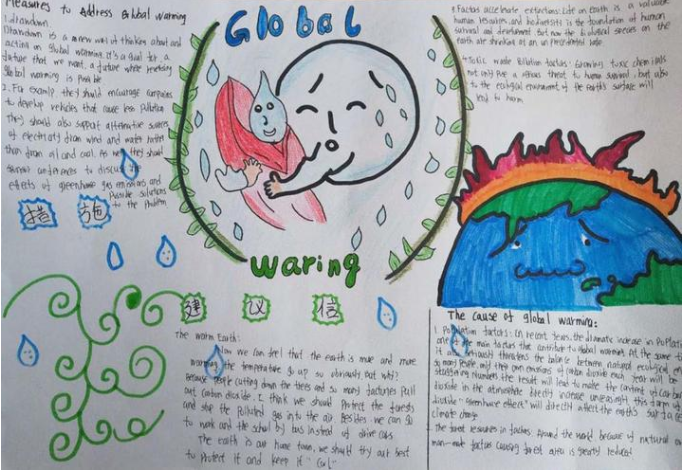 Measures to Address Global warming
1. drawdown.
Drawdown is a new way of thinking about and
acting on global warming. It's a goal for a
future that we want, a future while reversing
Global warming is possible
2. For example they should encourage companies
to develop vehicles that cause less pollution
They should also support alternative sources
of electricity from wind and water rather
than from oil and coal. As well they should
conferences to discuss the
effects of greenhouse gas emissions and
Possible solutions
to the problem
措 施
Global
waring
3 Factors accelerate extinctions: Life on Earth is a valuable
human resources, and biodiversity is the foundation of human
survival and development. But now the biological species on the
earth are shrinking at an un precedented rate.
4 Toxic waste pollution factors: Growing toxic chemicals
not only pose a serious threat to human survival, but also
to the ecological environment of the earth's surface will
lead to harm
建 议 信
The warm Earth:
Now we can feel that the earth is more and more
warming. the temperature go up so obviously but why?
Because people cutting down the trees and so many factories Pull
out carbon dioxide. I think we should Protect the forests
and stop the Polluted gas into the air Besides we can go
to work and the school by bus instead of drive cars
The earth is our home town, we should try our best
to protect it and keep it "Cool"
The cause of global warming:
1. Population factors: In recent years, the dramatic increase in Population
one of the main factors that contribute to global warming. At the same
it seriously threatens the balance between natural ecological
so many people, only their own emissions of carbon dioxide each year will be
staggering numbers, the result will lead to make the content of carbon
dioxide in the atmosphere directly increase unceasingly, this form of
dioxide "greenhouse effect" will directly affect the earth's surface
climate change.
The forest resources in factors. Around the world because of natural or
man-made factors causing forest area is greatly reduced.